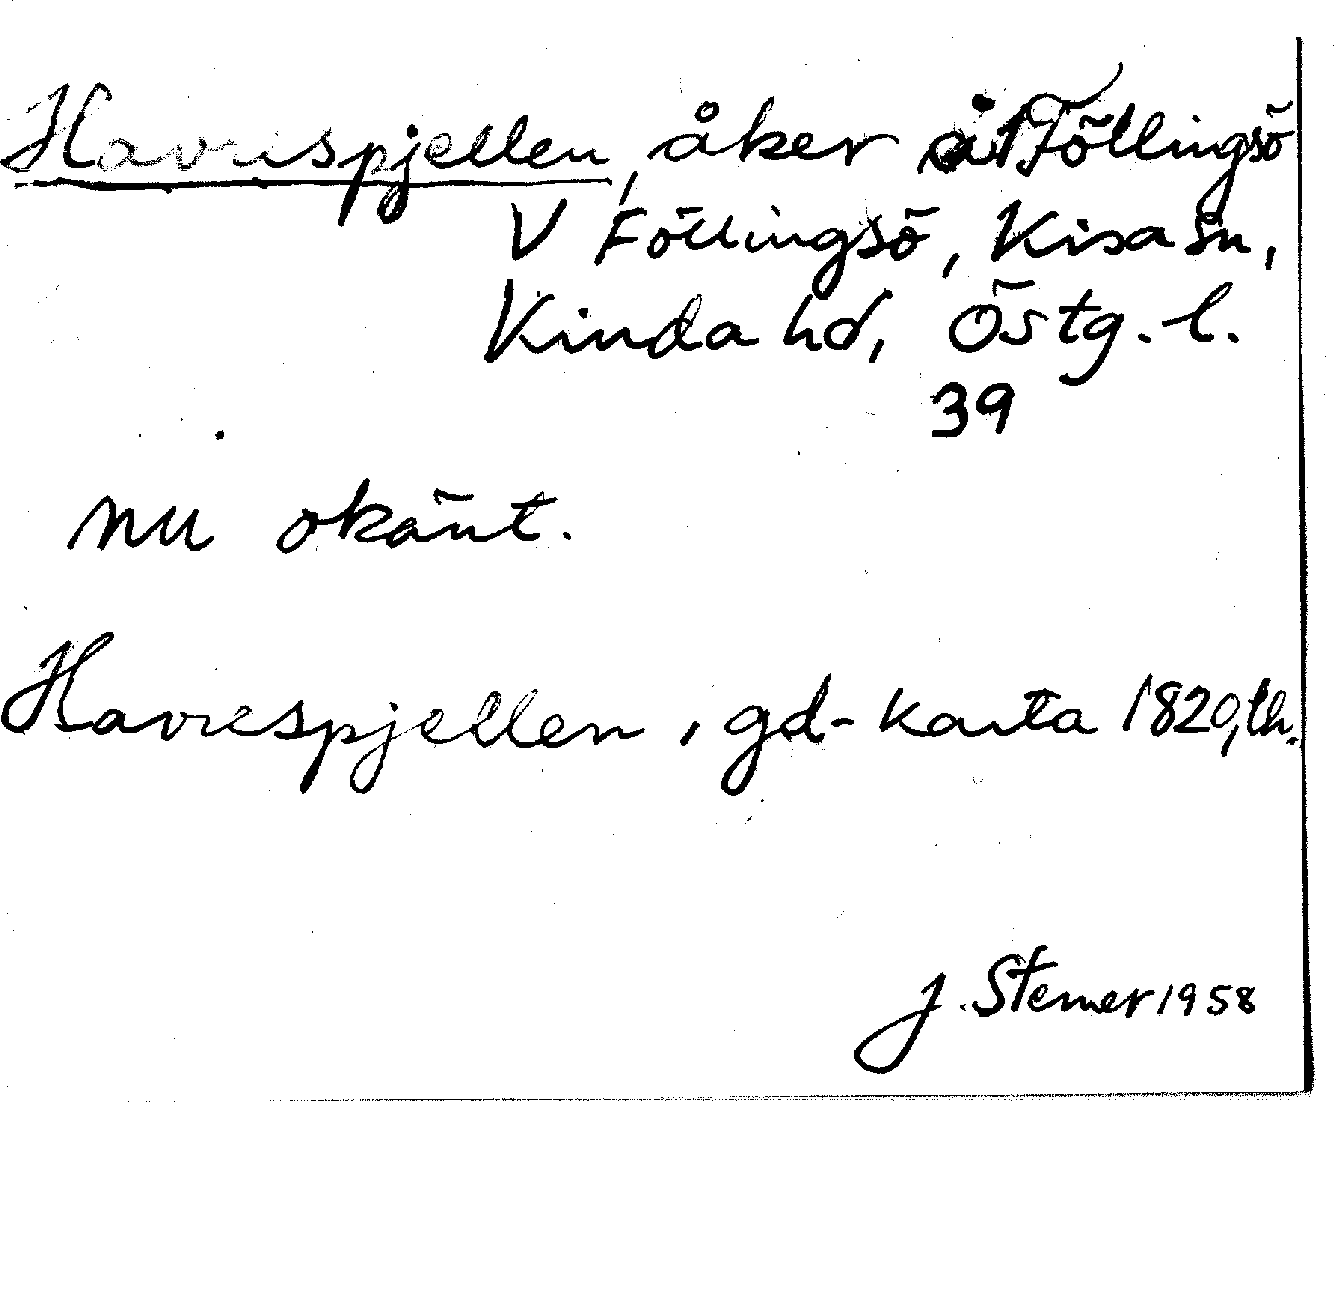 Havrespjellen, åker å Föllingsö
V Föllingsö, Kisa sn,
Kinda hd, Östg. l.
39
nu okänt.
Havrespjellen, gd-karta 1820, lh.
J. Sterner 1958